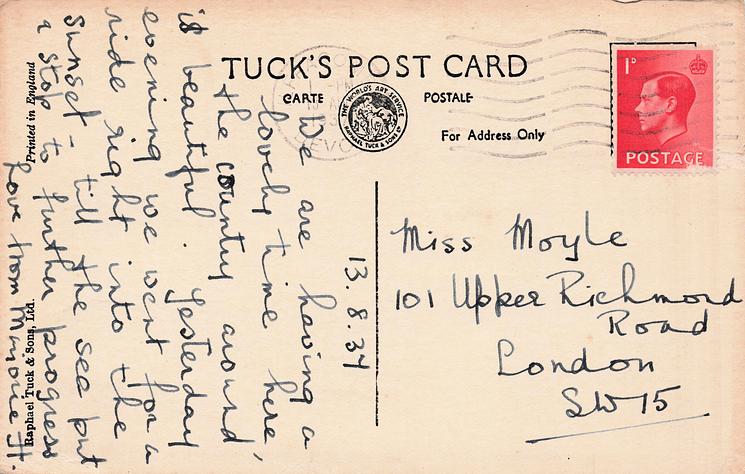 TUCK'S POST CARD
CARTE POSTALE
For Address Only
THE WORLD'S ART SERVICE
RAPHAEL TUCK & SONS LTD
1D
POSTAGE
DEVON
Printed in England
Raphael Tuck & Sons, Ltd.
13.8.37
We are having a
lovely time here,
the country around
is beautiful. Yesterday
evening we went for a
ride right into the
sunset - till the sea put
a stop to further progress
Love from H.
Miss Moyle
101 Upper Richmond
Road
London
SW15